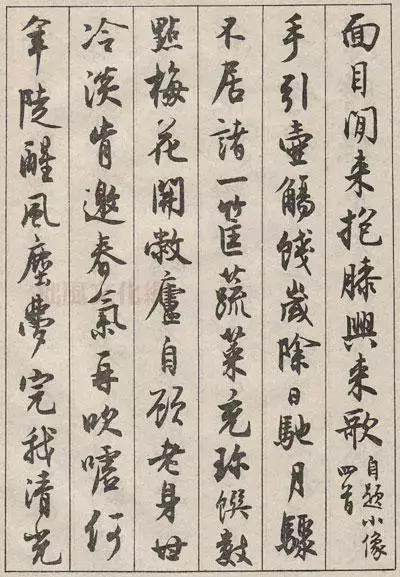 面目閒来抱膝興来歌
自題小像
四首
手引壺觴餞歲除日馳月驟
不居諸一筐蔬菜充珍饌數
點梅花開敝廬自顧老身甘
冷淡肯邀春氣再吹嘘何
年陡醒風塵夢完我清光